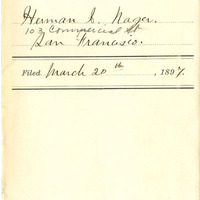 Herman L. Nager.
103 Commercial St
San Francisco.
Filed March 20th, 1897.